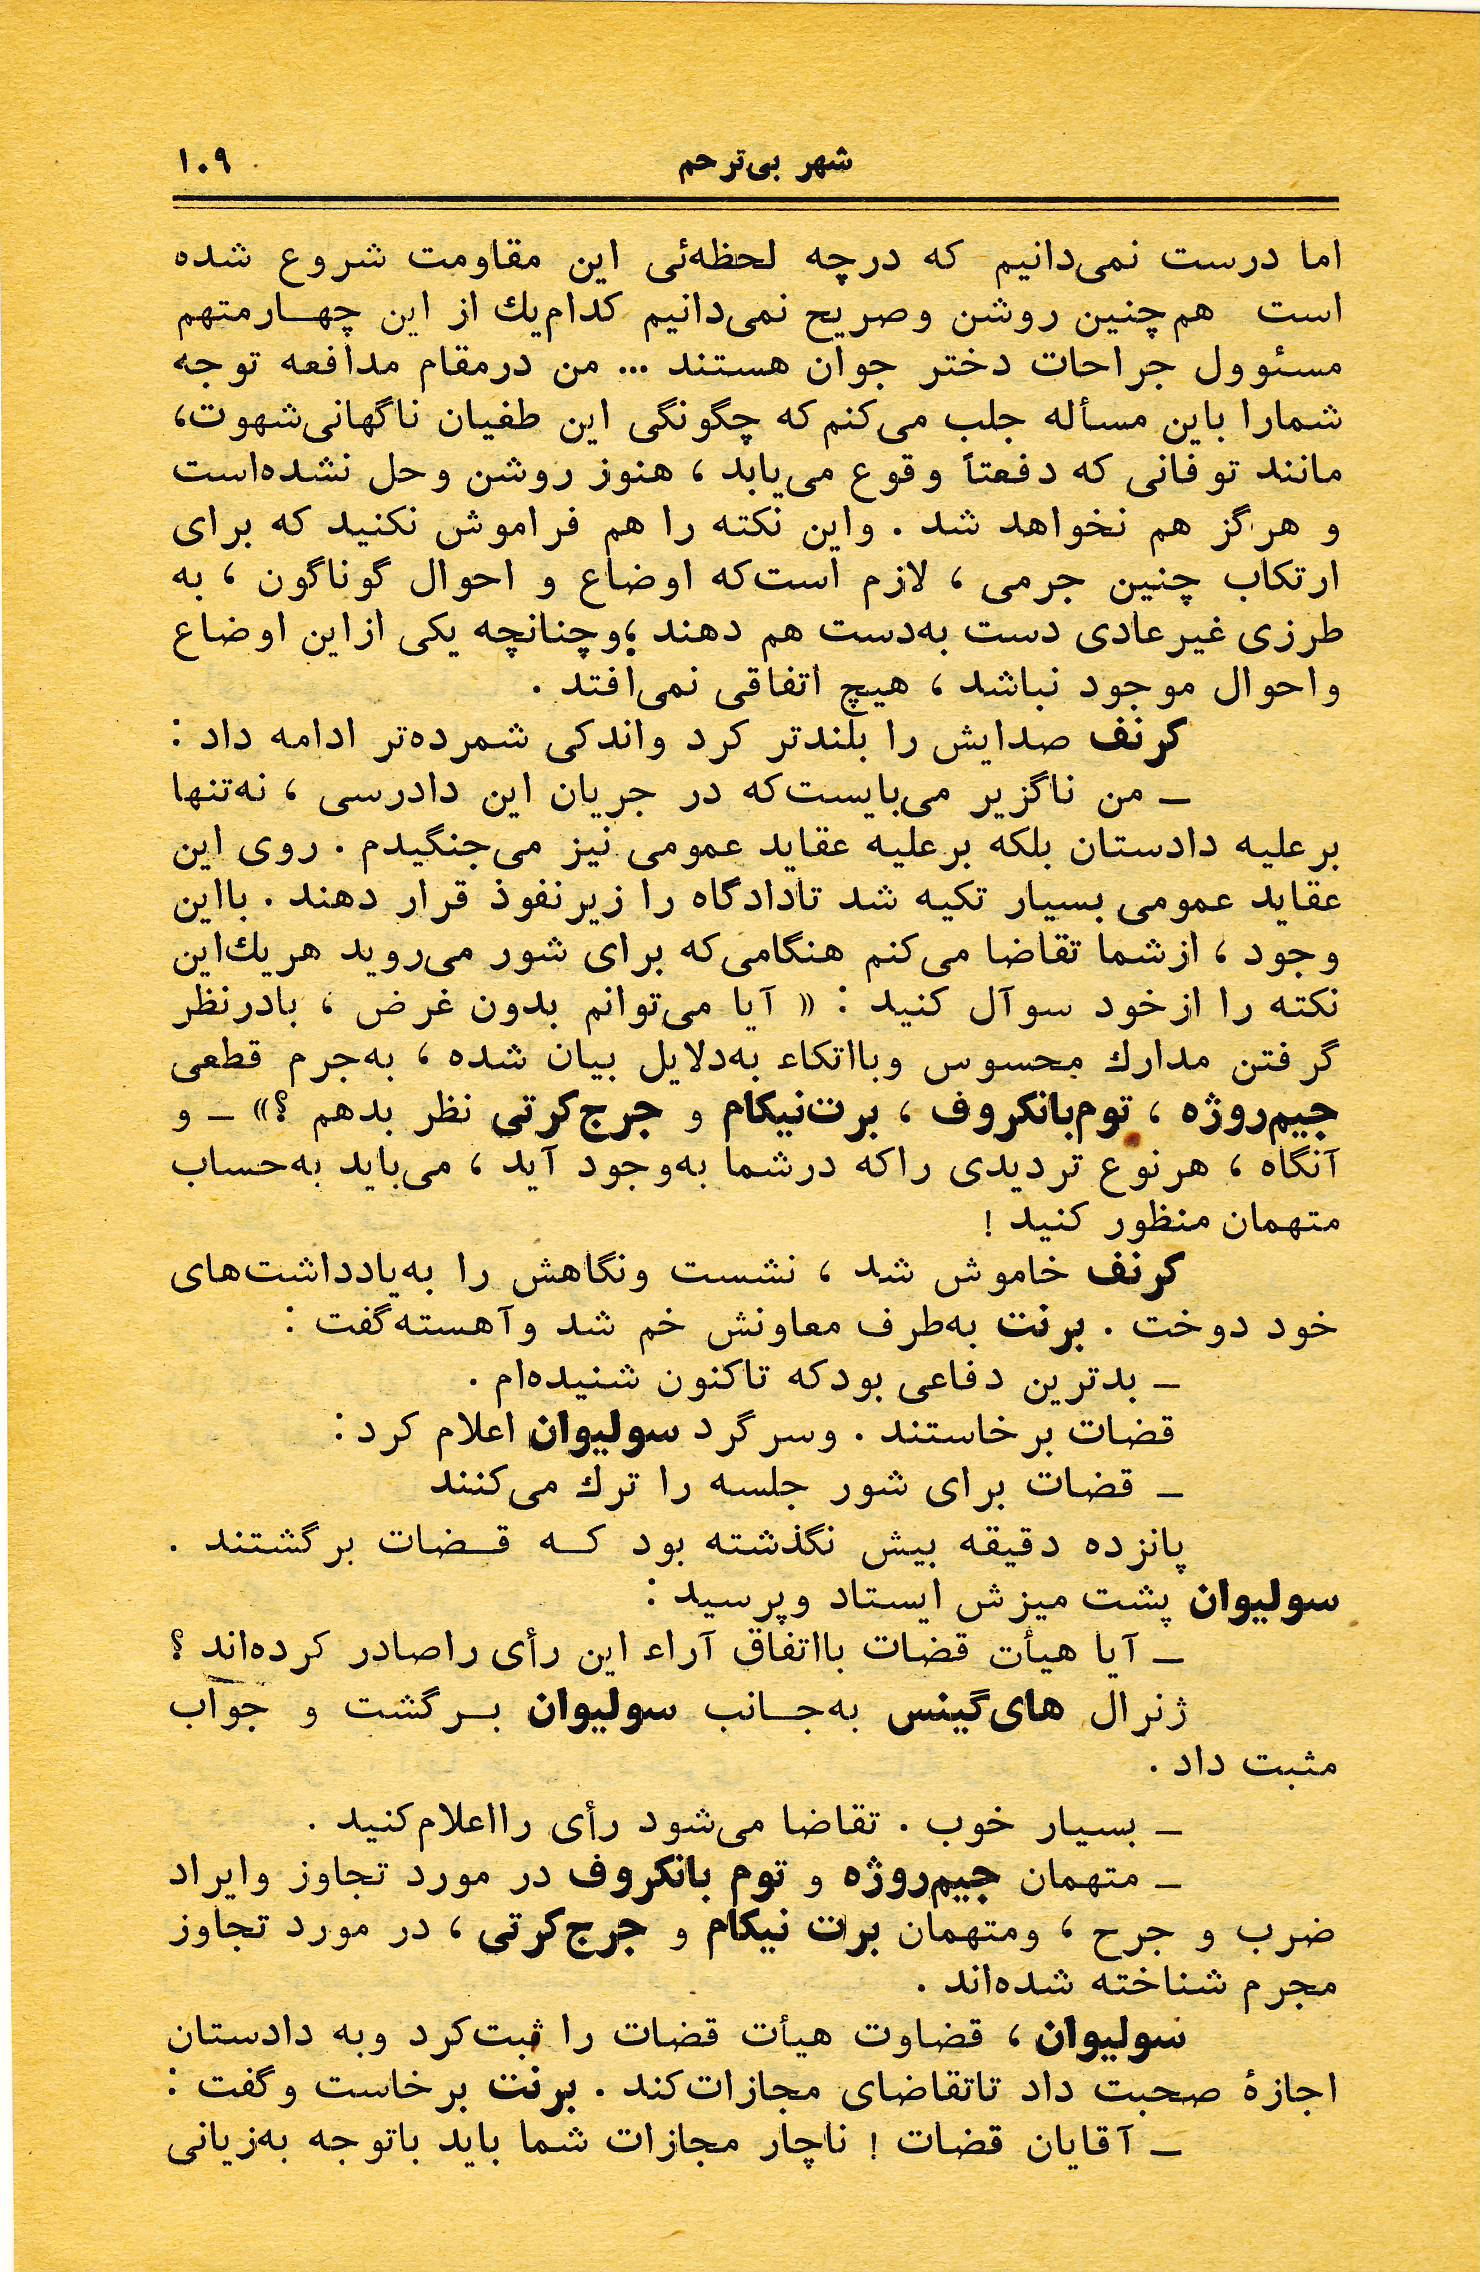 شهر بی‌ترحم ۱۰۹
اما درست نمی‌دانیم که درچه لحظه‌ئی این مقاومت شروع شده
است هم‌چنین روشن وصریح نمی‌دانیم کدام‌یك از این چهارمتهم
مسئوول جراحات دختر جوان هستند ... من درمقام مدافعه توجه
شمارا باین مسأله جلب می‌کنم که چگونگی این طفیان ناگهانی‌شهوت،
مانند توفانی که دفعتاً وقوع می‌یابد ، هنوز روشن وحل نشده‌است
و هرگز هم نخواهد شد . واین نکته را هم فراموش نکنید که برای
ارتکاب چنین جرمی ، لازم است‌که اوضاع و احوال گوناگون ، به
طرزی غیرعادی دست به‌دست هم دهند ؛وچنانچه یکی ازاین اوضاع
واحوال موجود نباشد ، هیچ اتفاقی نمی‌افتد .
کرنف صدایش را بلندتر کرد واندکی شمرده‌تر ادامه داد :
ـ من ناگزیر می‌بایست‌که در جریان این دادرسی ، نه‌تنها
برعلیه دادستان بلکه برعلیه عقاید عمومی نیز می‌جنگیدم . روی این
عقاید عمومی بسیار تکیه شد تادادگاه را زیرنفوذ قرار دهند . بااین
وجود ، ازشما تقاضا می‌کنم هنگامی‌که برای شور می‌روید هریك‌این
نکته را ازخود سوآل کنید : « آیا می‌توانم بدون غرض ، بادرنظر
گرفتن مدارك محسوس وبااتکاء به‌دلایل بیان شده ، به‌جرم قطعی
جیم‌روژه ، توم‌بانکروف ، برت‌نیکام و جرج‌کرتی نظر بدهم ؟» ـ و
آنگاه ، هرنوع تردیدی راکه درشما به‌وجود آید ، می‌باید به‌حساب
متهمان منظور کنید !
کرنف خاموش شد ، نشست ونگاهش را به‌یادداشت‌های
خود دوخت . برنت به‌طرف معاونش خم شد وآهسته‌گفت :
ـ بدترین دفاعی بودکه تاکنون شنیده‌ام .
قضات برخاستند . وسرگرد سولیوان اعلام کرد :
ـ قضات برای شور جلسه را ترك می‌کنند
پانزده دقیقه بیش نگذشته بود که قضات برگشتند .
سولیوان پشت میزش ایستاد وپرسید :
ـ آیا هیأت قضات بااتفاق آراء این رأی راصادر کرده‌اند ؟
ژنرال های‌گینس به‌جانب سولیوان برگشت و جواب
مثبت داد .
ـ بسیار خوب . تقاضا می‌شود رأی رااعلام‌کنید .
ـ متهمان جیم‌روژه و توم بانکروف در مورد تجاوز وایراد
ضرب و جرح ، ومتهمان برت نیکام و جرج‌کرتی ، در مورد تجاوز
مجرم شناخته شده‌اند .
سولیوان ، قضاوت هیأت قضات را ثبت‌کرد وبه دادستان
اجازهٔ صحبت داد تاتقاضای مجازات‌کند . برنت برخاست وگفت :
ـ آقایان قضات ! ناچار مجازات شما باید باتوجه به‌زیانی